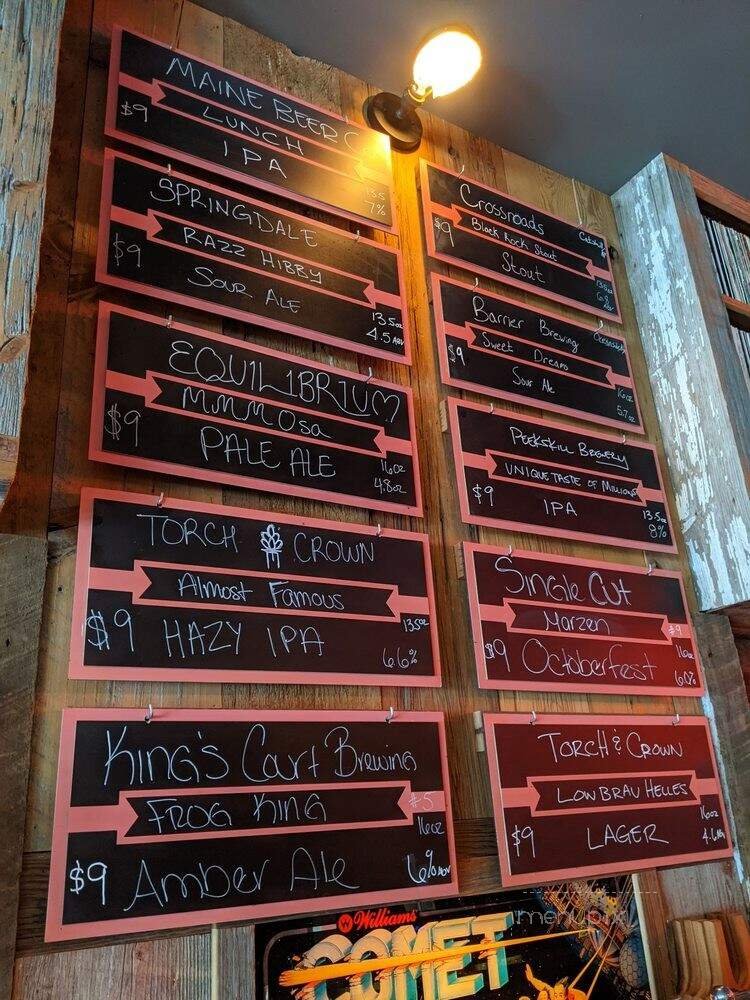 MAINE BEER C
LUNCH
$9
IPA
13.5
7%
SPRINGDALE
RAZZ HIBBY
$9
SOUR ALE
13.5oz
4.5 ABV
EQUILIBRIUM
MMMOsa
$9
PALE ALE
16oz
4.8oz
TORCH & CROWN
Almost Famous
13.5oz
$9
HAZY IPA
6.6%
KING'S Court Brewing
FROG KING
#5
16oz
$9
Amber Ale
6% ABV
Crossroads
Black Rock Stout
$9
Stout
13.5oz
6.8
ABV
Barrier Brewing
Oceanside
Sweet Dream
$9
Sour Ale
16oz
5.7oz
PEEKSKILL BREWERY
UNIQUE TASTE OF MILLIONS
$9
IPA
13.5oz
8%
Single Cut
Marzen
#9
$9
Octoberfest
16oz
6.0%
TORCH & CROWN
LOW BRAU HELLES
16oz
$9
LAGER
4.6
Williams
COMET
menupix